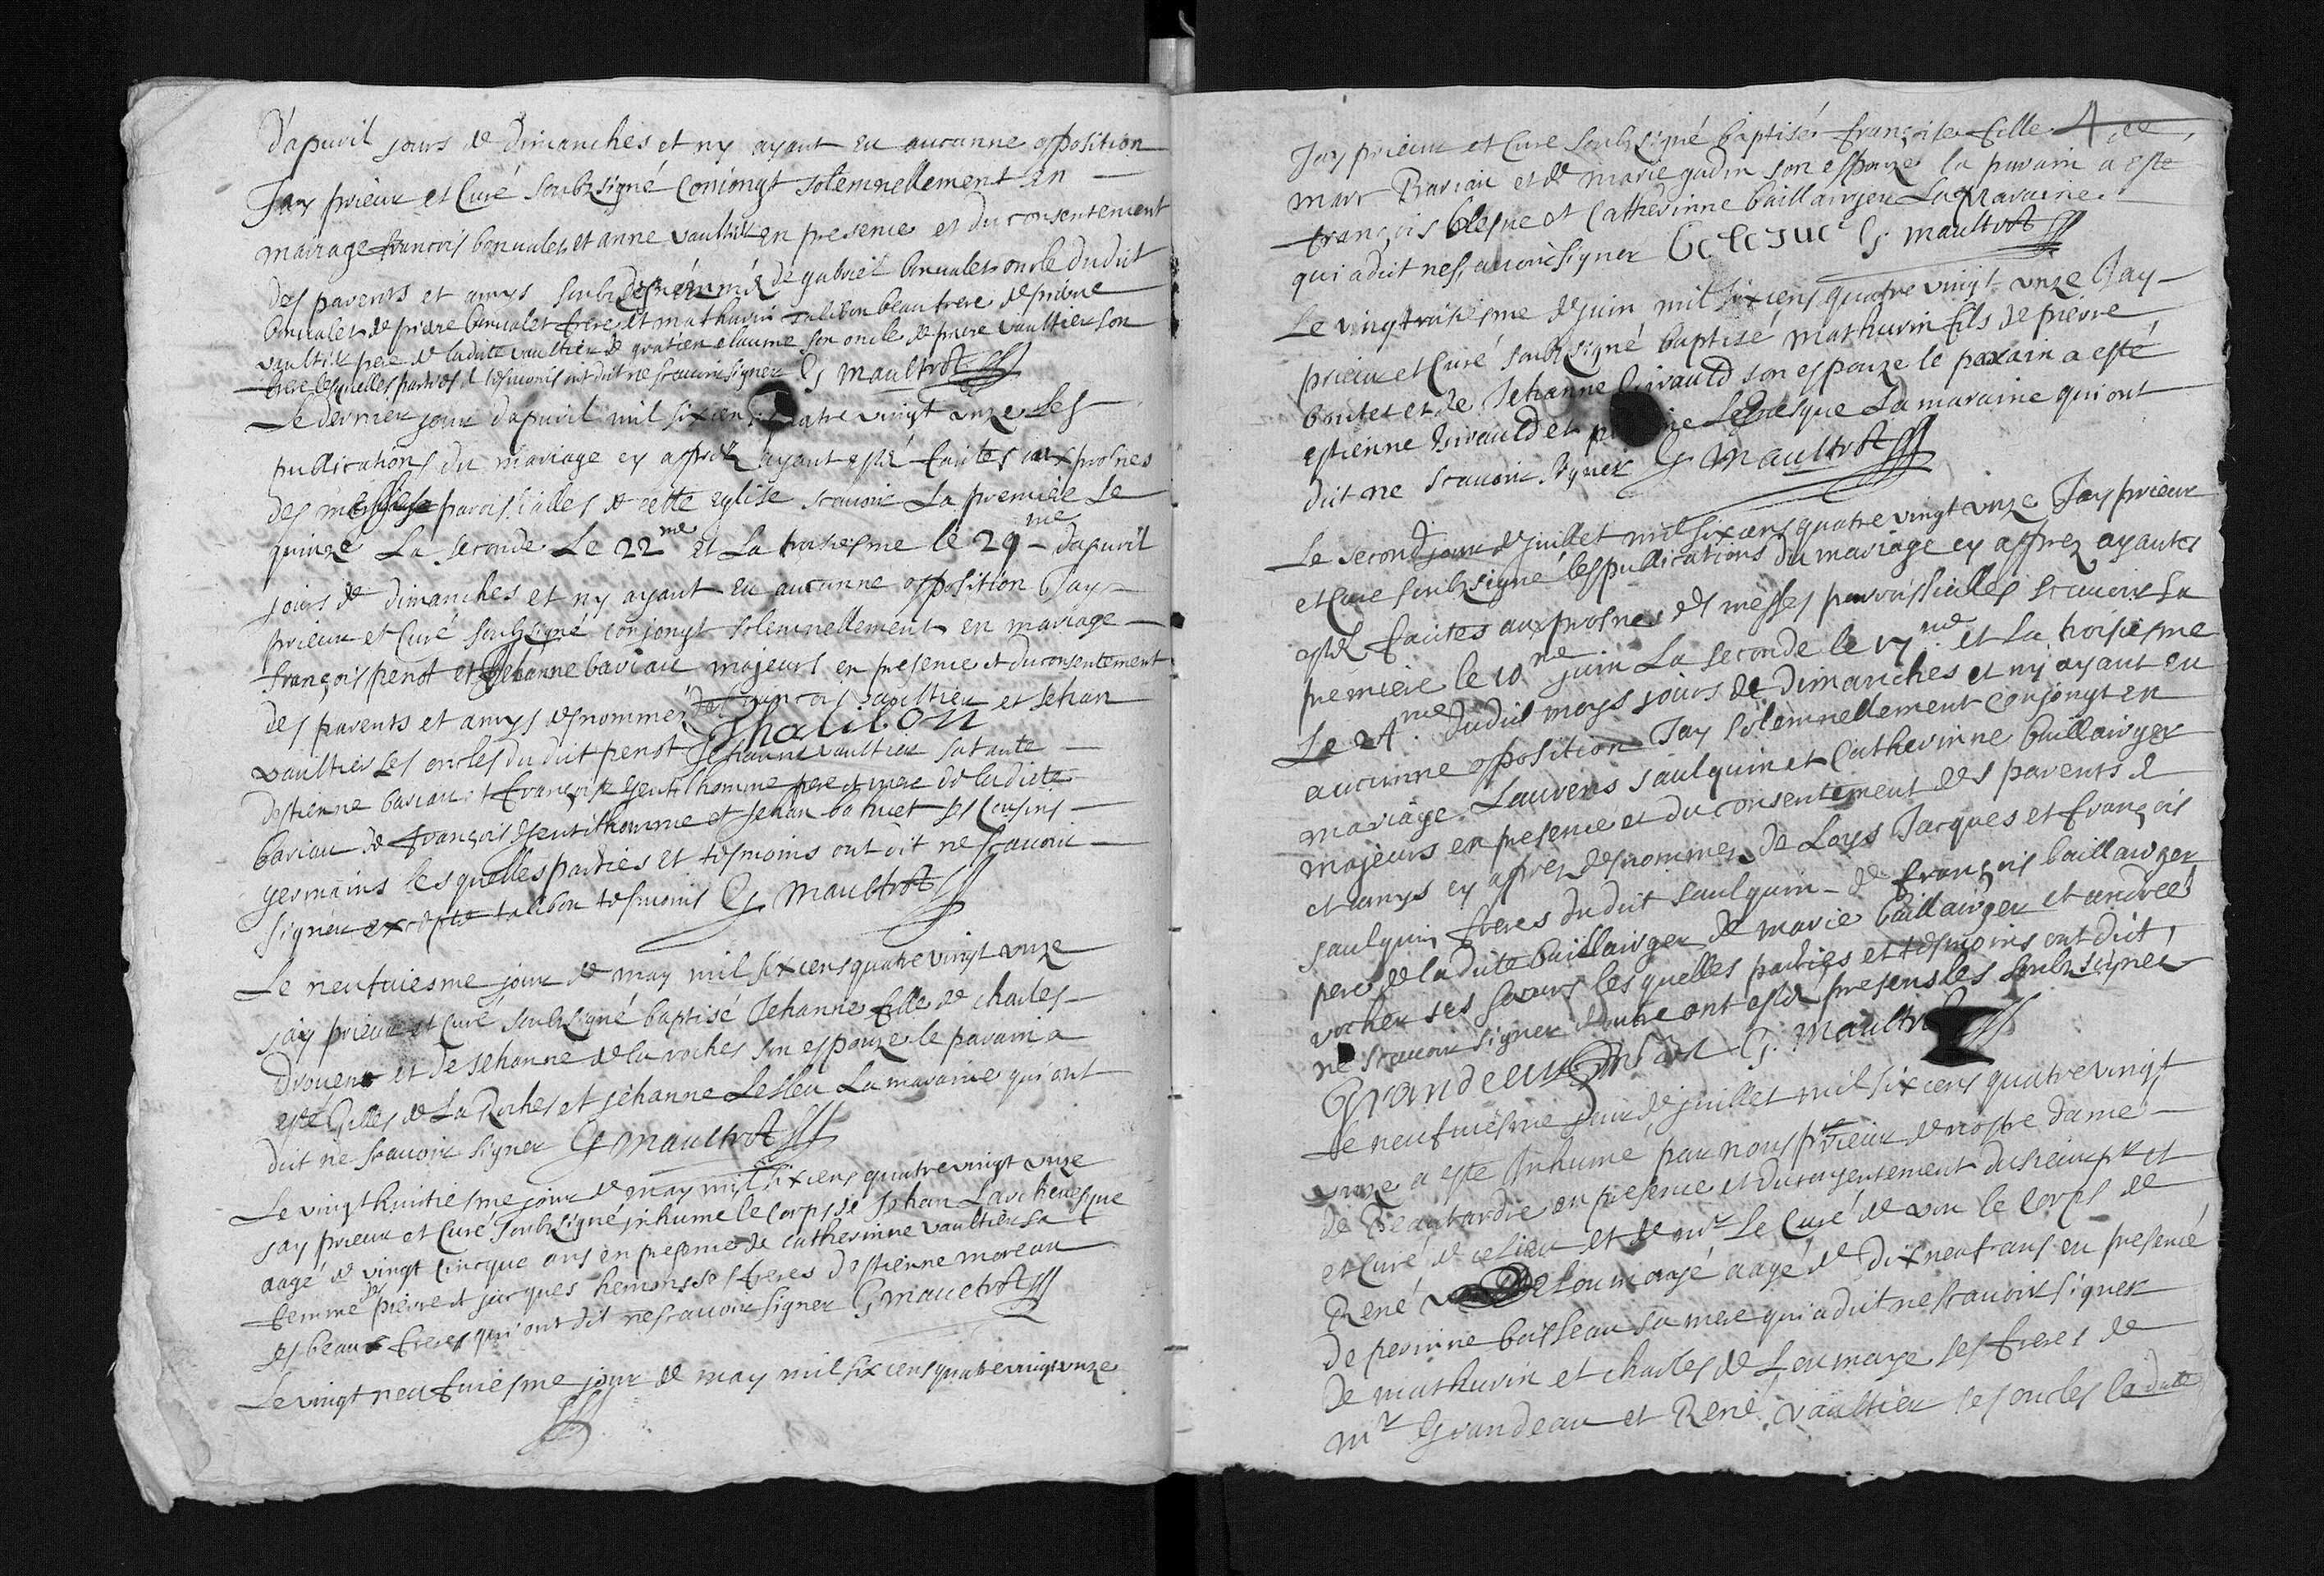 d'apuril jours de dimanches et ny ayant eu aucunne opposition
Jay prieur et Curé soubsigné conjongt solemnellement en
mariage francois bonualet et anne vaultier en presence et du consentement
des parents et amys soubz desnommés de gabriel bonualet oncle dudit
bonualet de pierre bonualet frere et mathurin talibon beau frere de pierre
vaultier pere de ladite vaultier de gratien elaume son oncle de pierre vaultier son
frere lesquelles parties et tesmoins ont dit ne scauoir signer G maultrot
Le dernier jour dapuril mil six cens quatre vingt unze les
publications du mariage cy apprez ayant esté faites aux prosnes
des messes paroissialles de cette eglise scauoir La premiere le
quinze La seconde Le 22me et La troisiesme le 29me dapuril
jours de dimanches et ny ayant eu aucunne opposition Jay
prieur et Curé soubsigné conjongt solemnellement en mariage
françois penot et Jehanne bariau majeurs en presence et du consentement
des parents et amys desnommés de francois vaultier et Jehan
Thalibon
vaultier ses oncles du dit penot Jehanne vaultier sa tante
destienne bariau et françoise gentilhomme pere et mere de ladicte
bariau de françois gentilhomme et Jehan bahuet ses Cousins
germains lesquelles parties et tesmoins ont dit ne scauoir
signer excepté talibon tesmoins G maultrot
Le neufuiesme jour de may mil six cens quatre vingt unze
jay prieur et Curé soubsigné baptisé Jehanne fille de charles
drouent et de Jehanne de la roches son espouze le parain a
esté Gilles de La Roches et jehanne Lesleu La maraine qui ont
dit ne scauoir signer G maultrot
Le vingt huitiesme jour de may mil six cens quatre vingt unze
jay prieur et Curé soubsigné inhumé le corps de Jehan Larcheuesque
aagé de vingt cincque ans en presence de catherinne vaultier sa
femme de pierre et jacques hemonts ses freres destienne moreau
ses beaux freres qui ont dit ne scauoir signer G maultrot
Le vingt neufuiesme jour de may mil six cens quatre vingt unze
4
Jay prieur et Curé soubsigné baptisé françoise fille de
marc Bariau et de marie gadin son espouze la parain a esté
françois Clesue et Catherinne baillarger La Maraine
qui a dit ne scauoir signer G maultrot
Le vingtroisiesme de juin mil six cens quatre vingt unze Jay
prieur et Curé soubsigné baptisé mathurin fils de pierre
boutet et de Jehanne Giraudd son espouze le parain a esté
estienne Girauld et Leuesque La maraine qui ont
dit ne scauoir signer G maultrot
Le second jour de juillet mil six cens quatre vingt unze Jay prieur
et Cure soubsigné les publications du mariage cy apprez ayantes
esté faites aux prosnes des messes parroissialles scauoir La
premiere le 10me juin La seconde le 17me et La troisiesme
Le 24me dudit moys jours de dimanches et ny ayant eu
aucunne opposition Jay solemnellement conjongt en
mariage Laurens saulquin et Catherinne baillarger
majeurs en presence et du consentement des parents et
et amys cy apprez desnommes de Loys Jacques et françois
saulquin freres du dit saulquin de françois baillarger
pere de ladite baillarger de marie baillarger et andree
rocher ses soeurs lesquelles parties et tesmoins ont dit
ne scauoir signer et ont esté presens les soubz signez
Grandeau G. Maultrot
Le neufuiesme jour de juillet mil six cens quatre vingt
unze a esté Inhumé par nous prieur de nostre dame
de Beautardie en presence et du consentement du sieur pr et
et Curé de ce lieu et de mr Le Curé de vou le Corps de
René de Loumaye aagé de dix neuf ans en presence
de perinne boisseau sa mere qui a dit ne scauoir signer
de mathurin et charles de Loumaye ses freres de
mr Grandeau et René vaultier ses oncles ladite